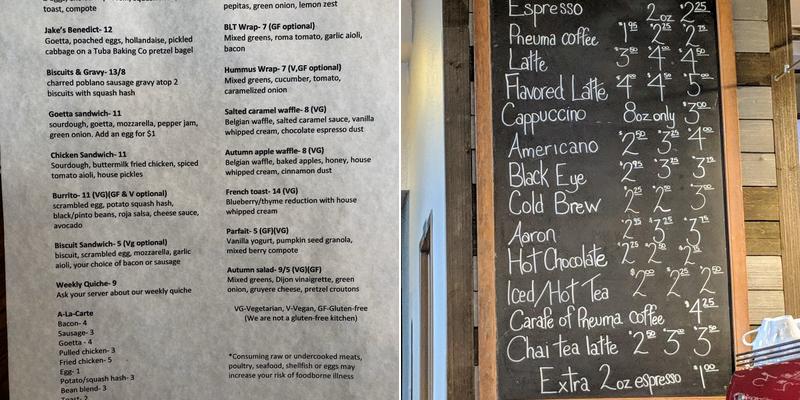 toast, compote
Jake's Benedict- 12
Goetta, poached eggs, hollandaise, pickled
cabbage on a Tuba Baking Co pretzel bagel
Biscuits & Gravy- 13/8
charred poblano sausage gravy atop 2
biscuits with squash hash
Goetta sandwich- 11
sourdough, goetta, mozzarella, pepper jam,
green onion. Add an egg for $1
Chicken Sandwich- 11
Sourdough, buttermilk fried chicken, spiced
tomato aioli, house pickles
Burrito- 11 (VG)(GF & V optional)
scrambled egg, potato squash hash,
black/pinto beans, roja salsa, cheese sauce,
avocado
Biscuit Sandwich- 5 (Vg optional)
biscuit, scrambled egg, mozzarella, garlic
aioli, your choice of bacon or sausage
Weekly Quiche- 9
Ask your server about our weekly quiche
A-La-Carte
Bacon- 4
Sausage- 3
Goetta - 4
Pulled chicken- 3
Fried chicken- 5
Egg- 1
Potato/squash hash- 3
Bean blend- 3
Toast- 2
pepitas, green onion, lemon zest
BLT Wrap- 7 (GF optional)
Mixed greens, roma tomato, garlic aioli,
bacon
Hummus Wrap- 7 (V,GF optional)
Mixed greens, cucumber, tomato,
caramelized onion
Salted caramel waffle- 8 (VG)
Belgian waffle, salted caramel sauce, vanilla
whipped cream, chocolate espresso dust
Autumn apple waffle- 8 (VG)
Belgian waffle, baked apples, honey, house
whipped cream, cinnamon dust
French toast- 14 (VG)
Blueberry/thyme reduction with house
whipped cream
Parfait- 5 (GF)(VG)
Vanilla yogurt, pumpkin seed granola,
mixed berry compote
Autumn salad- 9/5 (VG)(GF)
Mixed greens, Dijon vinaigrette, green
onion, gruyere cheese, pretzel croutons
VG-Vegetarian, V-Vegan, GF-Gluten-free
(We are not a gluten-free kitchen)
*Consuming raw or undercooked meats,
poultry, seafood, shellfish or eggs may
increase your risk of foodborne illness
Espresso 2oz $2.25
Pneuma coffee $1.95 2.25 2.75
Latte $3.50 4.00 4.50
Flavored Latte $4.00 4.50 5.00
Cappuccino 8oz only $3.00
Americano $2.50 3.25 4.00
Black Eye $2.95 3.25 3.75
Cold Brew $2.25 2.50 3.00
Aaron $2.95 3.25 3.75
Hot Chocolate $2.25 2.50 2.75
Iced/Hot Tea $2.00 2.25 2.50
Carafe of Pneuma coffee $4.25
Chai tea latte $2.50 3.00 3.50
Extra 2oz espresso $1.00